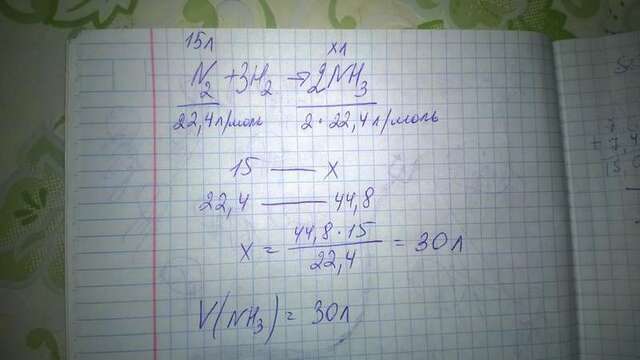 15л хл
N₂ + 3H₂ → 2NH₃
22,4 л/моль 2 · 22,4 л/моль
15 — x
22,4 — 44,8
x = 44,8 · 15 / 22,4 = 30 л
V(NH₃) = 30л